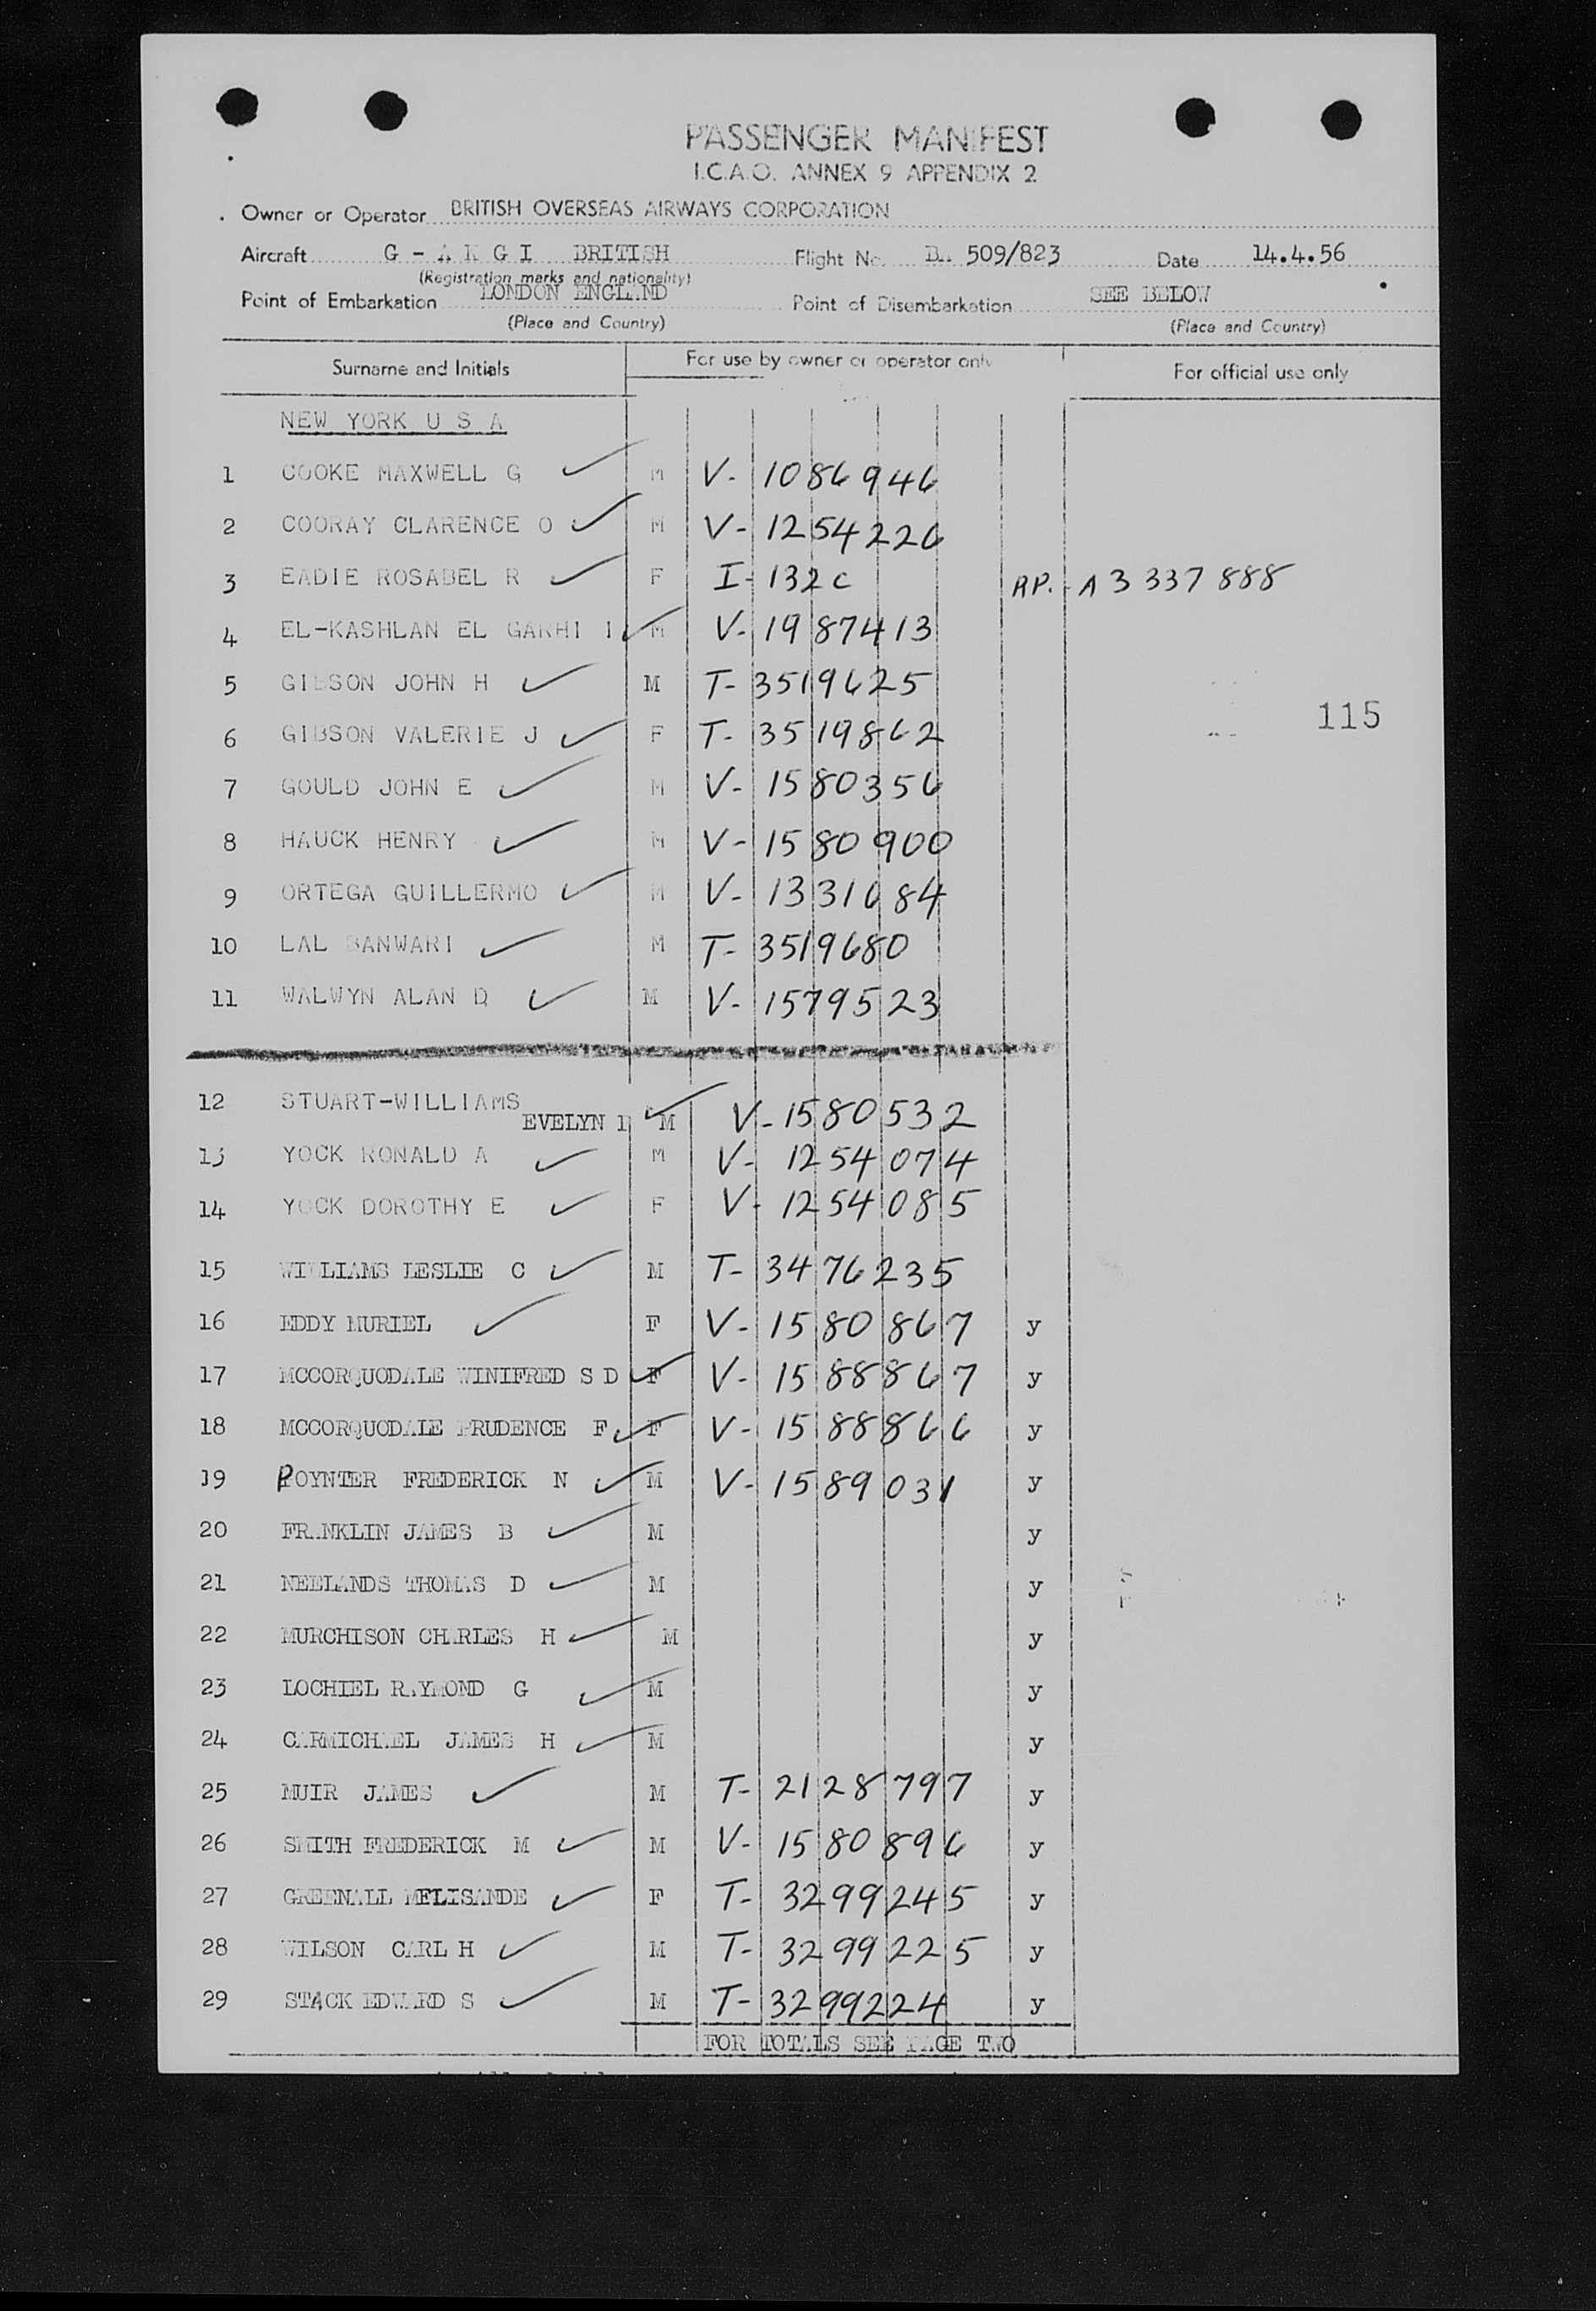 PASSENGER MANIFEST
I.C.A.O. ANNEX 9 APPENDIX 2
Owner or Operator BRITISH OVERSEAS AIRWAYS CORPORATION
Aircraft G - A K G I BRITISH Flight No. BA 509/823 Date 14.4.56
(Registration marks and nationality)
Point of Embarkation LONDON ENGLAND Point of Disembarkation SEE BELOW
(Place and Country) (Place and Country)
Surname and Initials For use by owner or operator only For official use only
NEW YORK U S A
1 COOKE MAXWELL G M V- 1086946
2 COORAY CLARENCE O M V- 1254226
3 EADIE ROSABEL R F I- 132c RP. - A3 337 888
4 EL-KASHLAN EL GARHI I M V- 1987413
5 GIBSON JOHN H M T- 3519625
115
6 GIBSON VALERIE J F T- 3519862
7 GOULD JOHN E M V- 1580356
8 HAUCK HENRY M V- 1580900
9 ORTEGA GUILLERMO M V- 1331684
10 LAL BANWARI M T- 3519680
11 WALWYN ALAN D M V- 1579523
12 STUART-WILLIAMS
EVELYN M V- 1580532
13 YOCK RONALD A M V- 1254074
14 YOCK DOROTHY E F V- 1254085
15 WILLIAMS LESLIE C M T- 3476235
16 EDDY MURIEL F V- 1580867 y
17 MCCORQUODALE WINIFRED S D F V- 1588867 y
18 MCCORQUODALE PRUDENCE F F V- 1588866 y
19 POYNTER FREDERICK N M V- 1589031 y
20 FRANKLIN JAMES B M y
21 NEELANDS THOMAS D M y
22 MURCHISON CHARLES H M y
23 LOCHIEL RAYMOND G M y
24 CARMICHAEL JAMES H M y
25 MUIR JAMES M T- 2128797 y
26 SMITH FREDERICK M M V- 1580896 y
27 GREENALL MELISANDE F T- 3299245 y
28 WILSON CARL H M T- 3299225 y
29 STACK EDWARD S M T- 3299224 y
FOR TOTALS SEE PAGE TWO